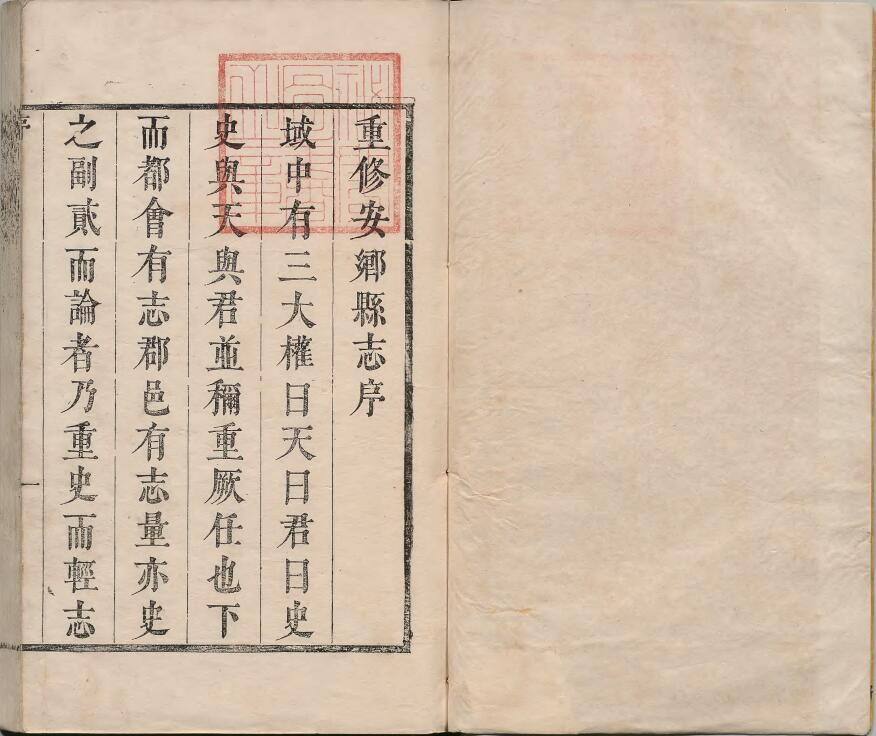 重修安鄉縣志序
域中有三大權曰天曰君曰史
史與天與君並稱重厥任也下
而都會有志郡邑有志量亦史
之副貳而論者乃重史而輕志